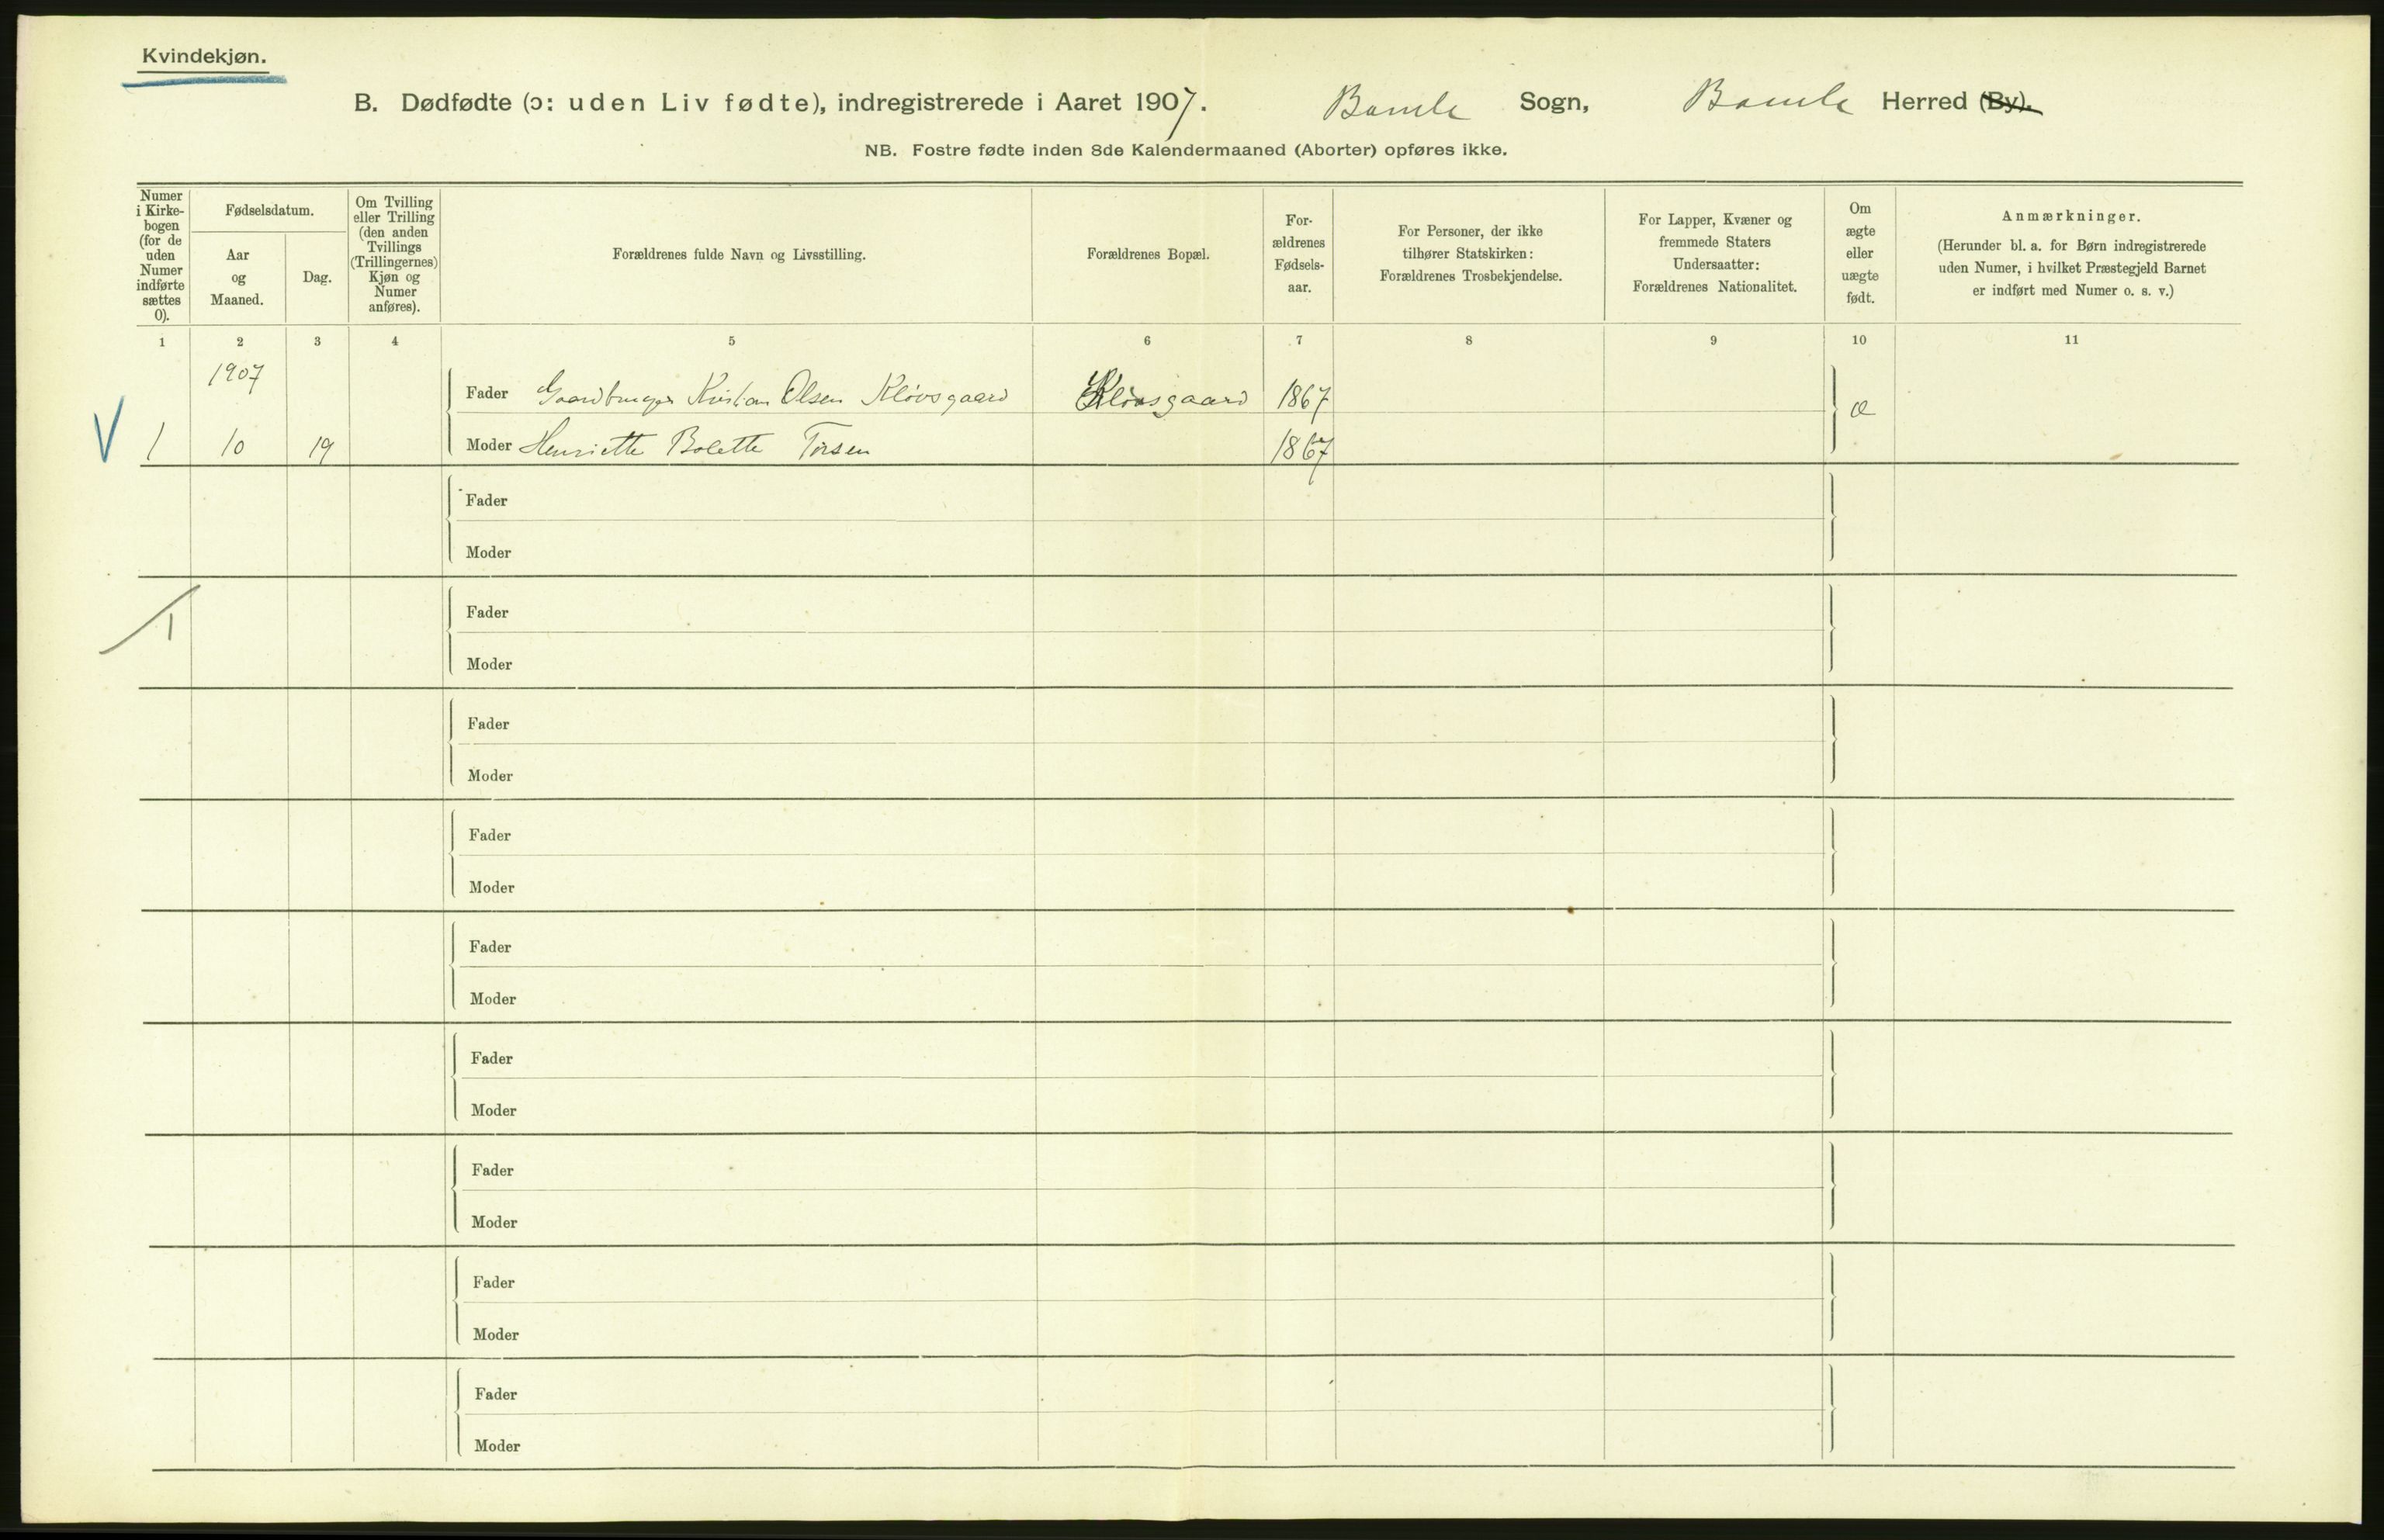 Kvindekjøn.
B. Dødfødte (ɔ: uden Liv fødte), indregistrerede i Aaret 1907. Bamle Sogn, Bamle Herred (By).
NB. Fostre fødte inden 8de Kalendermaaned (Aborter) opføres ikke.
Numer i Kirke-bogen (for de uden Numer indførte sættes 0).
Fødselsdatum.
Aar og Maaned.
Dag.
Om Tvilling eller Trilling (den anden Tvillings (Trillingernes) Kjøn og Numer anføres).
Forældrenes fulde Navn og Livsstilling.
Forældrenes Bopæl.
For-ældrenes Fødsels-aar.
For Personer, der ikke tilhører Statskirken: Forældrenes Trosbekjendelse.
For Lapper, Kvæner og fremmede Staters Undersaatter: Forældrenes Nationalitet.
Om ægte eller uægte født.
Anmærkninger.
(Herunder bl. a. for Børn indregistrerede uden Numer, i hvilket Præstegjeld Barnet er indført med Numer o. s. v.)
1 2 3 4 5 6 7 8 9 10 11
1907
Fader Gaardbruger Kristian Olsen Kløvsgaard Kløvsgaard 1867 æ
V 1 10 19 Moder Henriette Bolette Torsen 1867
Fader
Moder
1
Fader
Moder
Fader
Moder
Fader
Moder
Fader
Moder
Fader
Moder
Fader
Moder
Fader
Moder
Fader
Moder